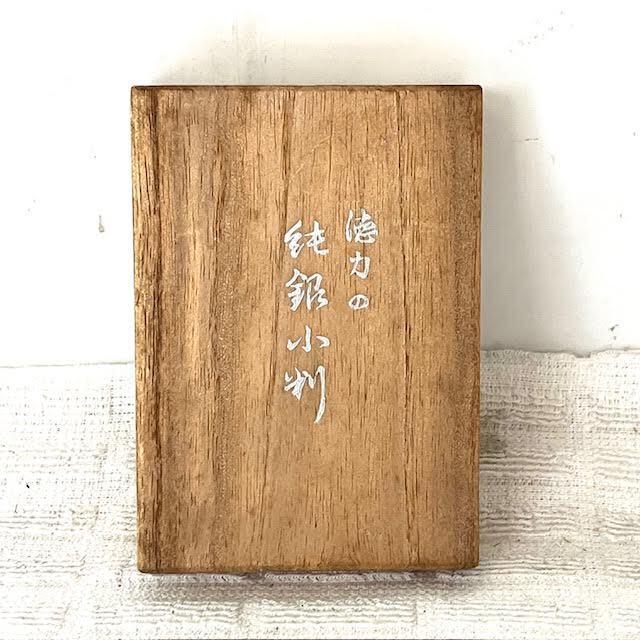 徳力の
純銀小判